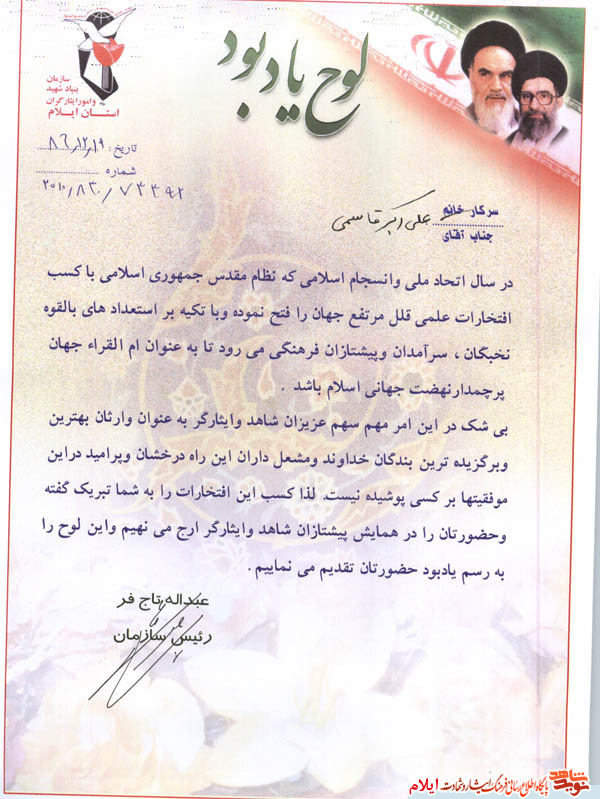 لوح یادبود
سازمان
بنیاد شهید
وامور ایثارگران
استان ایلام
تاریخ: ۸۶/۱۲/۱۹
شماره
۲۰۱۰/۸۳۰/۷۳۳۹۲
سرکار خانم
جناب آقای
علی اکبر قاسمی
در سال اتحاد ملی وانسجام اسلامی که نظام مقدس جمهوری اسلامی با کسب
افتخارات علمی قلل مرتفع جهان را فتح نموده وبا تکیه بر استعداد های بالقوه
نخبگان ، سرآمدان وپیشتازان فرهنگی می رود تا به عنوان ام القراء جهان
پرچمدارنهضت جهانی اسلام باشد .
بی شک در این امر مهم سهم عزیزان شاهد وایثارگر به عنوان وارثان بهترین
وبرگزیده ترین بندگان خداوند ومشعل داران این راه درخشان وپرامید دراین
موفقیتها بر کسی پوشیده نیست. لذا کسب این افتخارات را به شما تبریک گفته
وحضورتان را در همایش پیشتازان شاهد وایثارگر ارج می نهیم واین لوح را
به رسم یادبود حضورتان تقدیم می نماییم .
عبداله تاج فر
رئیس سازمان
نوید شاهد پایگاه اطلاع رسانی فرهنگ ایثار و شهادت ایلام